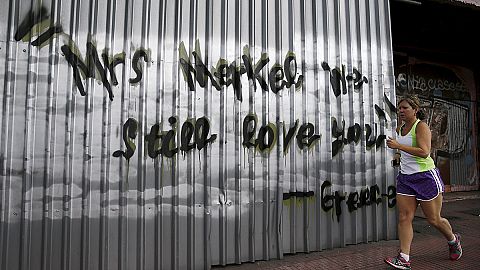 "Mrs Merkel we
still love you"
— Greece